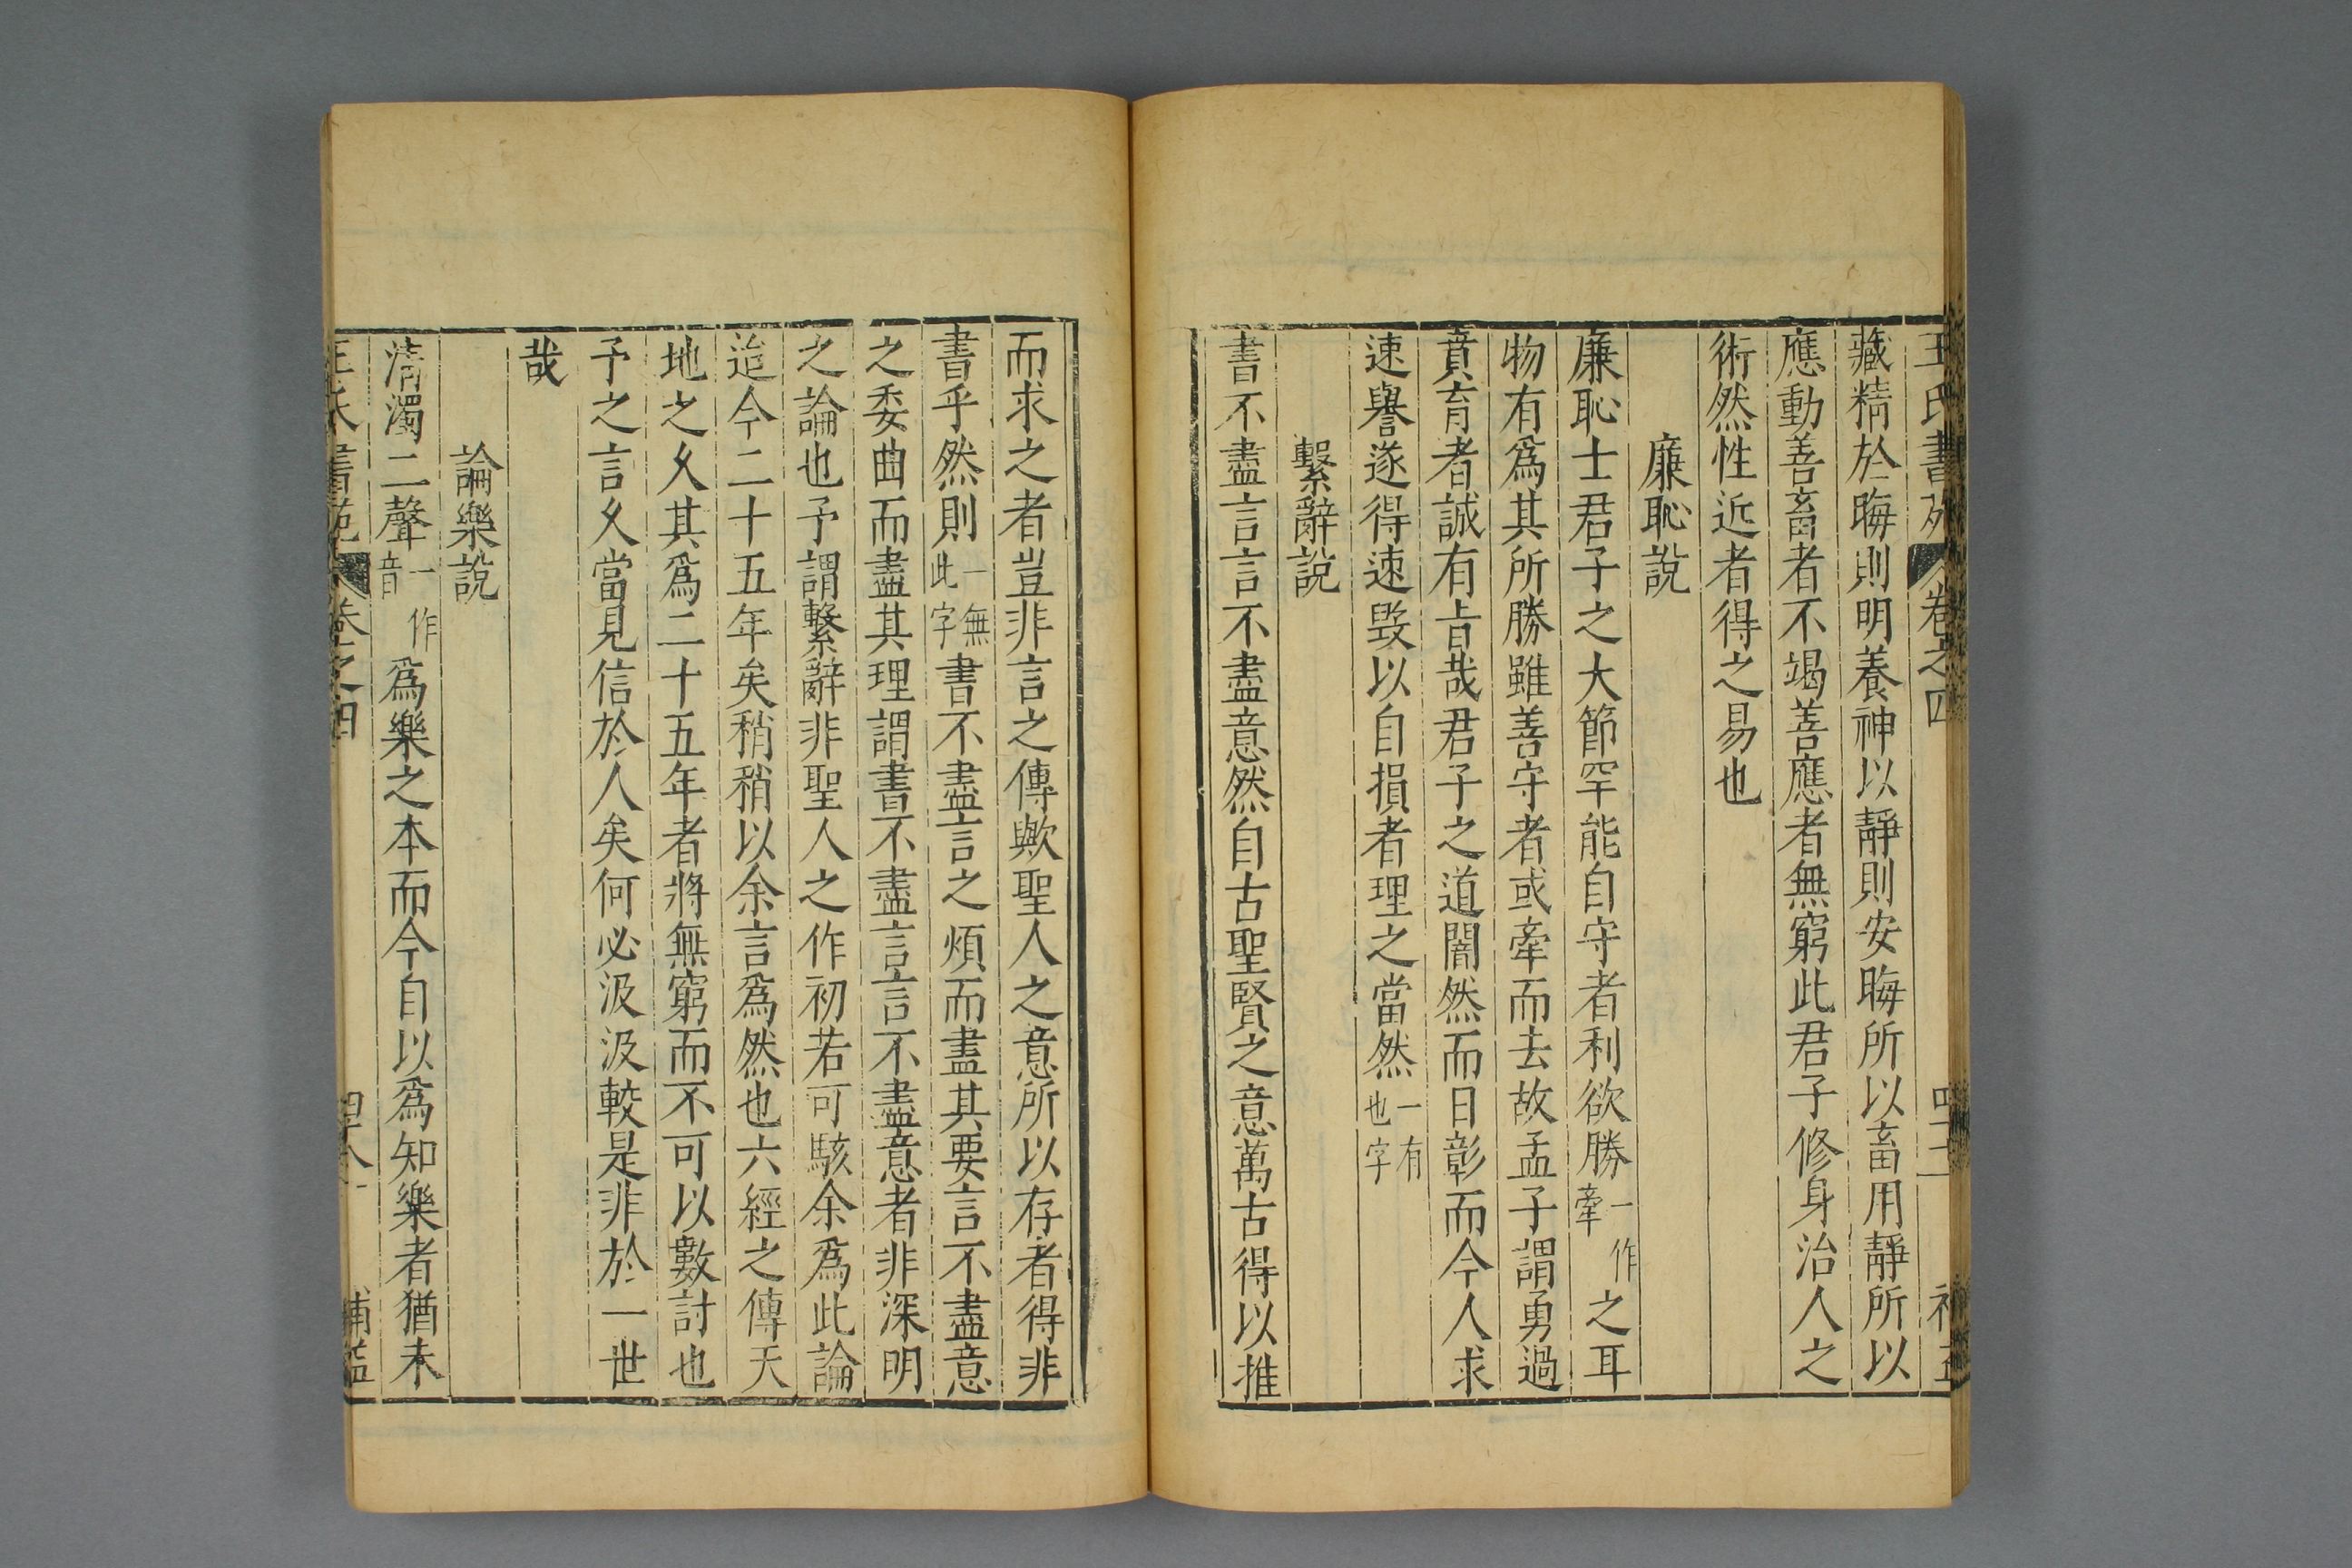 王氏書苑 卷之四
藏精於晦則明養神以靜則安晦所以畜用靜所以
應動善畜者不竭善應者無窮此君子修身治人之
術然性近者得之易也
廉恥說
廉恥士君子之大節罕能自守者利欲勝一作牽之耳
物有爲其所勝雖善守者或牽而去故孟子謂勇過
賁育者誠有旨哉君子之道闇然而日彰而今人求
速譽遂得速毀以自損者理之當然一有也字
繫辭說
書不盡言言不盡意然自古聖賢之意萬古得以推
而求之者豈非言之傳歟聖人之意所以存者得非
書乎然則一無此字書不盡言之煩而盡其要言不盡意
之委曲而盡其理謂書不盡言言不盡意者非深明
之論也予謂繫辭非聖人之作初若可駭余爲此論
迨今二十五年矣稍稍以余言爲然也六經之傳天
地之久其爲二十五年者將無窮而不可以數計也
予之言久當見信於人矣何必汲汲較是非於一世
哉
論樂說
淸濁二聲一作音爲樂之本而今自以爲知樂者猶未
王氏書苑 卷之四